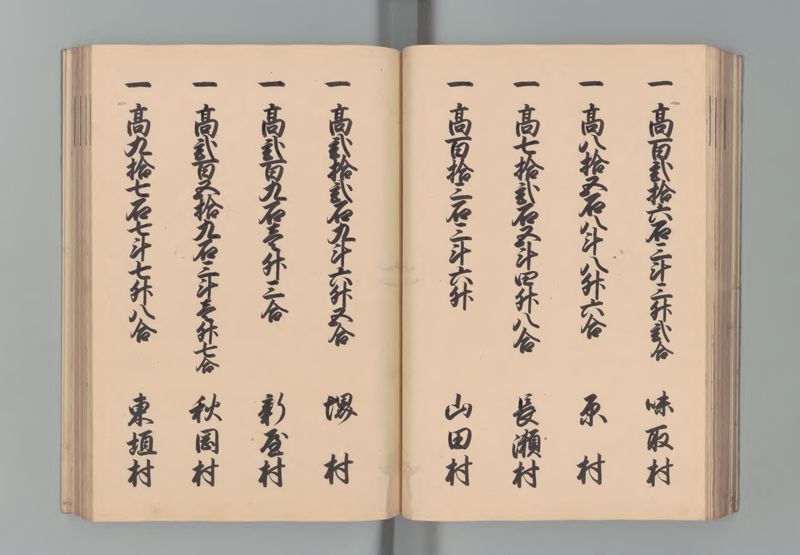 一 高百弐拾六石三斗三升弐合 味取村
一 高八拾五石八斗八升六合 原村
一 高七拾弐石五斗四升八合 長瀬村
一 高百拾三石三斗六升 山田村
一 高弐拾弐石九斗六升五合 堺村
一 高弐百九石壱升三合 新屋村
一 高弐百五拾九石三斗壱升七合 秋岡村
一 高九拾七石七斗七升八合 東垣村